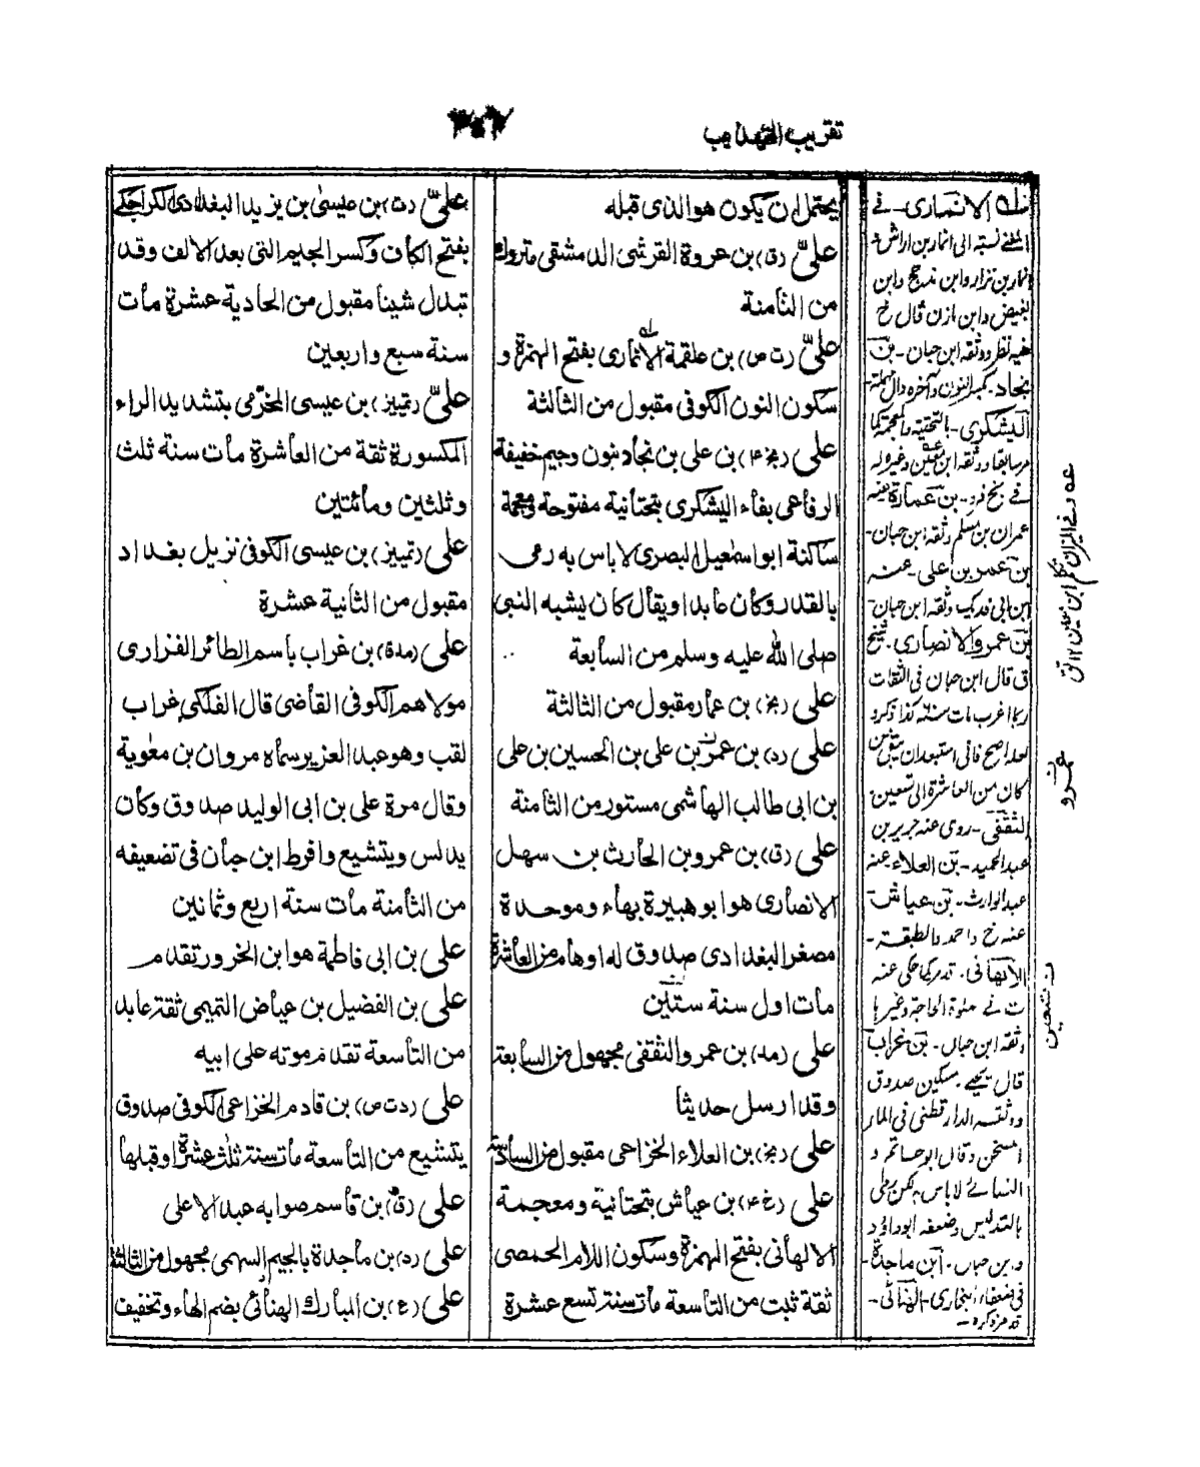 تقريب التهذيب
يحتمل ان يكون هو الذى قبله
علىّ (ق) بن عروة القرشى الدمشقى متروك
من الثامنة
علىّ (ت ص) بن علقمة الانمارى بفتح الهمزة و
سكون النون الكوفى مقبول من الثالثة
على (بخ ۴) بن على بن نجاد بنون وجيم خفيفة
الرفاعى بفاء اليشكرى بتحتانية مفتوحة ومعجمة
ساكنة ابو اسمٰعيل البصرى لا باس به رمى
بالقدر وكان عابدا ويقال كان يشبه النبى
صلى الله عليه وسلم من السابعة
على (بخ) بن عمار مقبول من الثالثة
على (د) بن عمر بن على بن الحسين بن على
بن ابى طالب الهاشمى مستور من الثامنة
على (ق) بن عمرو بن الحارث بن سهل
الانصارى هو ابو هبيرة بهاء وموحدة
مصغر البغدادى صدوق له اوهام من العاشرة
مات اول سنة ستين
على (مد) بن عمرو الثقفى مجهول من السابعة
وقد ارسل حديثا
على (بخ) بن العلاء الخزاعى مقبول من السادسة
على (خ ۴) بن عياش بتحتانية ومعجمة
الالهانى بفتح الهمزة وسكون اللام الحمصى
ثقة ثبت من التاسعة مات سنة تسع عشرة
علىّ (ت) بن عيسىٰ بن يزيد البغدادى الكراجكى
بفتح الكاف وكسر الجيم التى بعد الالف وقد
تبدل شينا مقبول من الحادية عشرة مات
سنة سبع واربعين
علىّ (تمييز) بن عيسى المخرّمى بتشديد الراء
المكسورة ثقة من العاشرة مات سنة ثلث
وثلثين ومائتين
على (تمييز) بن عيسى الكوفى نزيل بغداد
مقبول من الثانية عشرة
على (مدق) بن غراب باسم الطائر الفزارى
مولاهم الكوفى القاضى قال الفلكى غراب
لقب وهو عبد العزيز سماه مروان بن معٰوية
وقال مرة على بن ابى الوليد صدوق وكان
يدلس ويتشيع وافرط ابن حبان فى تضعيفه
من الثامنة مات سنة اربع وثمانين
على بن ابى فاطمة هو ابن الخرور تقدم
على بن الفضيل بن عياض التميمى ثقة عابد
من التاسعة تقدم موته على ابيه
على (دت ص) بن قادم الخزاعى الكوفى صدوق
يتشيع من التاسعة مات سنة ثلٰث عشرة او قبلها
على (ق) بن قاسم صوابه عبد الاعلى
على (د) بن ماجدة بالجيم السهمى مجهول من الثالثة
على (ع) بن المبارك الهنائى بضم الهاء وتخفيف
الانمارى - فى
المغنى نسبة الى انمار بن اراش و
انمار بن نزار وابن مذحج وابن
بغيض وابن مازن قال خ
فيه نظر ووثقه ابن حبان - بن
نجاد - بكسر النون وآخره دال مهملة -
اليشكرى - بالتحتية والمعجمة كما
مر سابقا ووثقه ابن معين وغيره له
فى بخ فرد - بن عمارة عنه
عمران بن مسلم وثقه ابن حبان -
بن عمر بن على - عنه
ابن ابى فديك وثقه ابن حبان -
بن عمرو الانصارى - شيخ
ق قال ابن حبان فى الثقات
ربما اغرب مات سنة ٦٠ كذا ذكره
كان من العاشرة الى تسعين
الثقفى - روى عنه جرير بن
عبد الحميد - بن العلاء عنه
عبد الوارث - بن عياش
عنه خ واحمد والطبقة -
ت فى صلوة الحاجة وغيرها
وثقه ابن حبان - بن غراب
قال يحيى مسكين صدوق
ووثقه الدارقطنى
وقال ابو حاتم و
النسائى لا باس به لكن رمى
بالتدليس وضعفه ابو داؤد
و ابن حبان - ابن ماجدة -
فى ضعفاء البخارى - الهنائى -
قد مر ذكره -